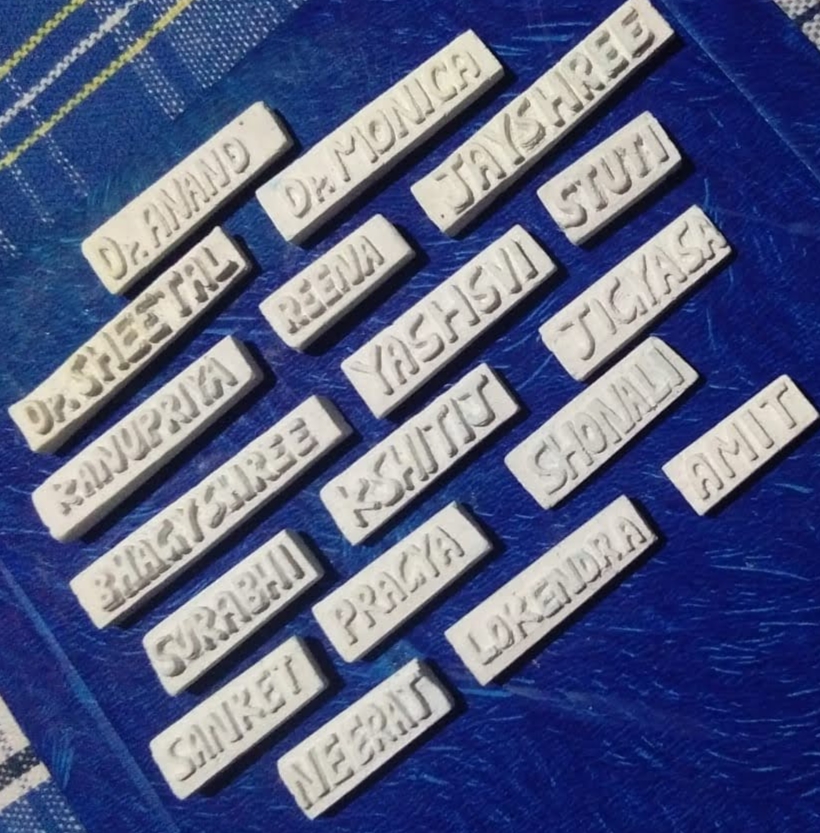 Dr. ANAND
Dr. MONICA
JAYSHREE
STUTI
Dr. SHEETAL
REENA
YASHSVI
JIGYASA
KANUPRIYA
BHAGYSHREE
KSHITIJ
SHONALI
AMIT
SURABHI
PRAGYA
LOKENDRA
SANKET
NEERAJ